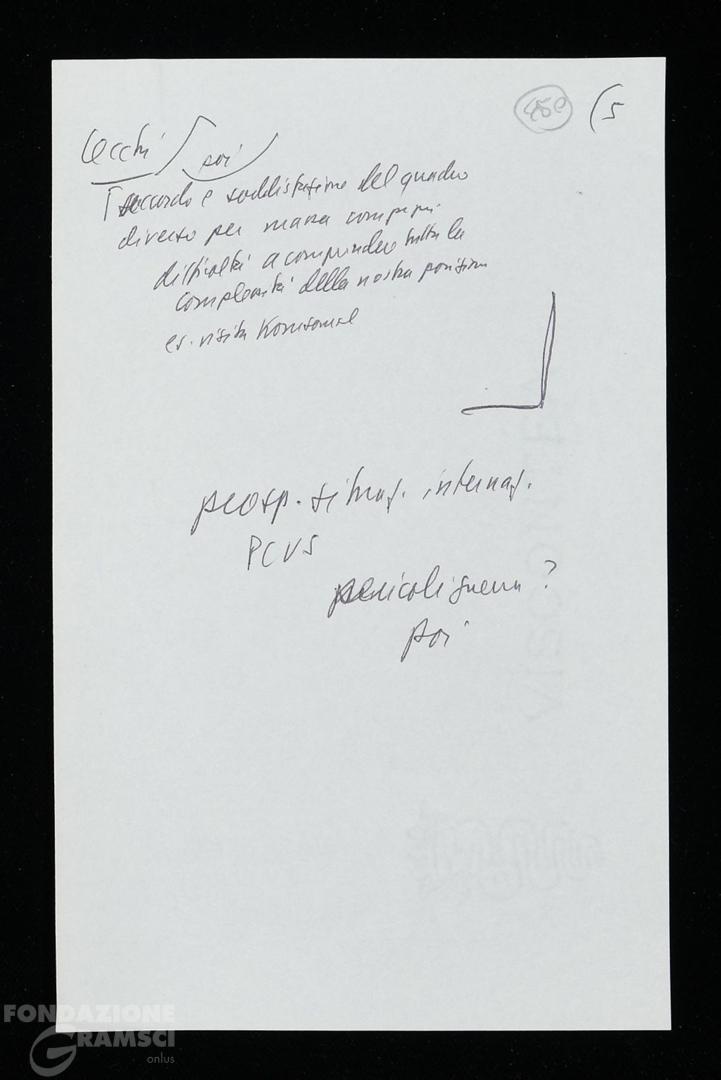 450 (5
Cecchi poi
accordo e soddisfazione del quadro
diverso per massa compagni
difficoltà a comprendere tutta la
complessità della nostra posizione
es. visita Komsomol
prosp. situaz. internaz.
PCUS
pericoli guerra?
poi
FONDAZIONE
GRAMSCI
onlus